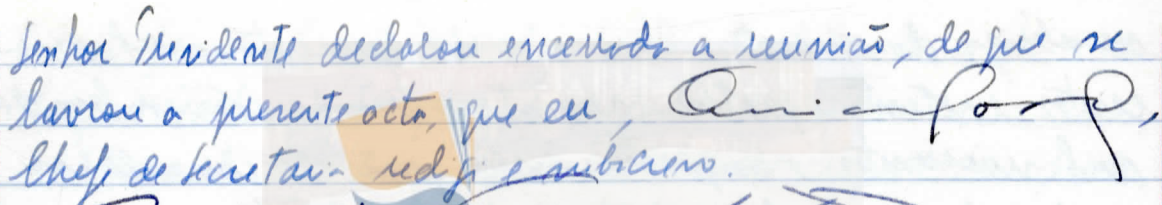 Senhor Presidente declarou encerrada a reunião, de que se
lavrou a presente acta, que eu,
Chefe de Secretaria redigi e subscrevo.